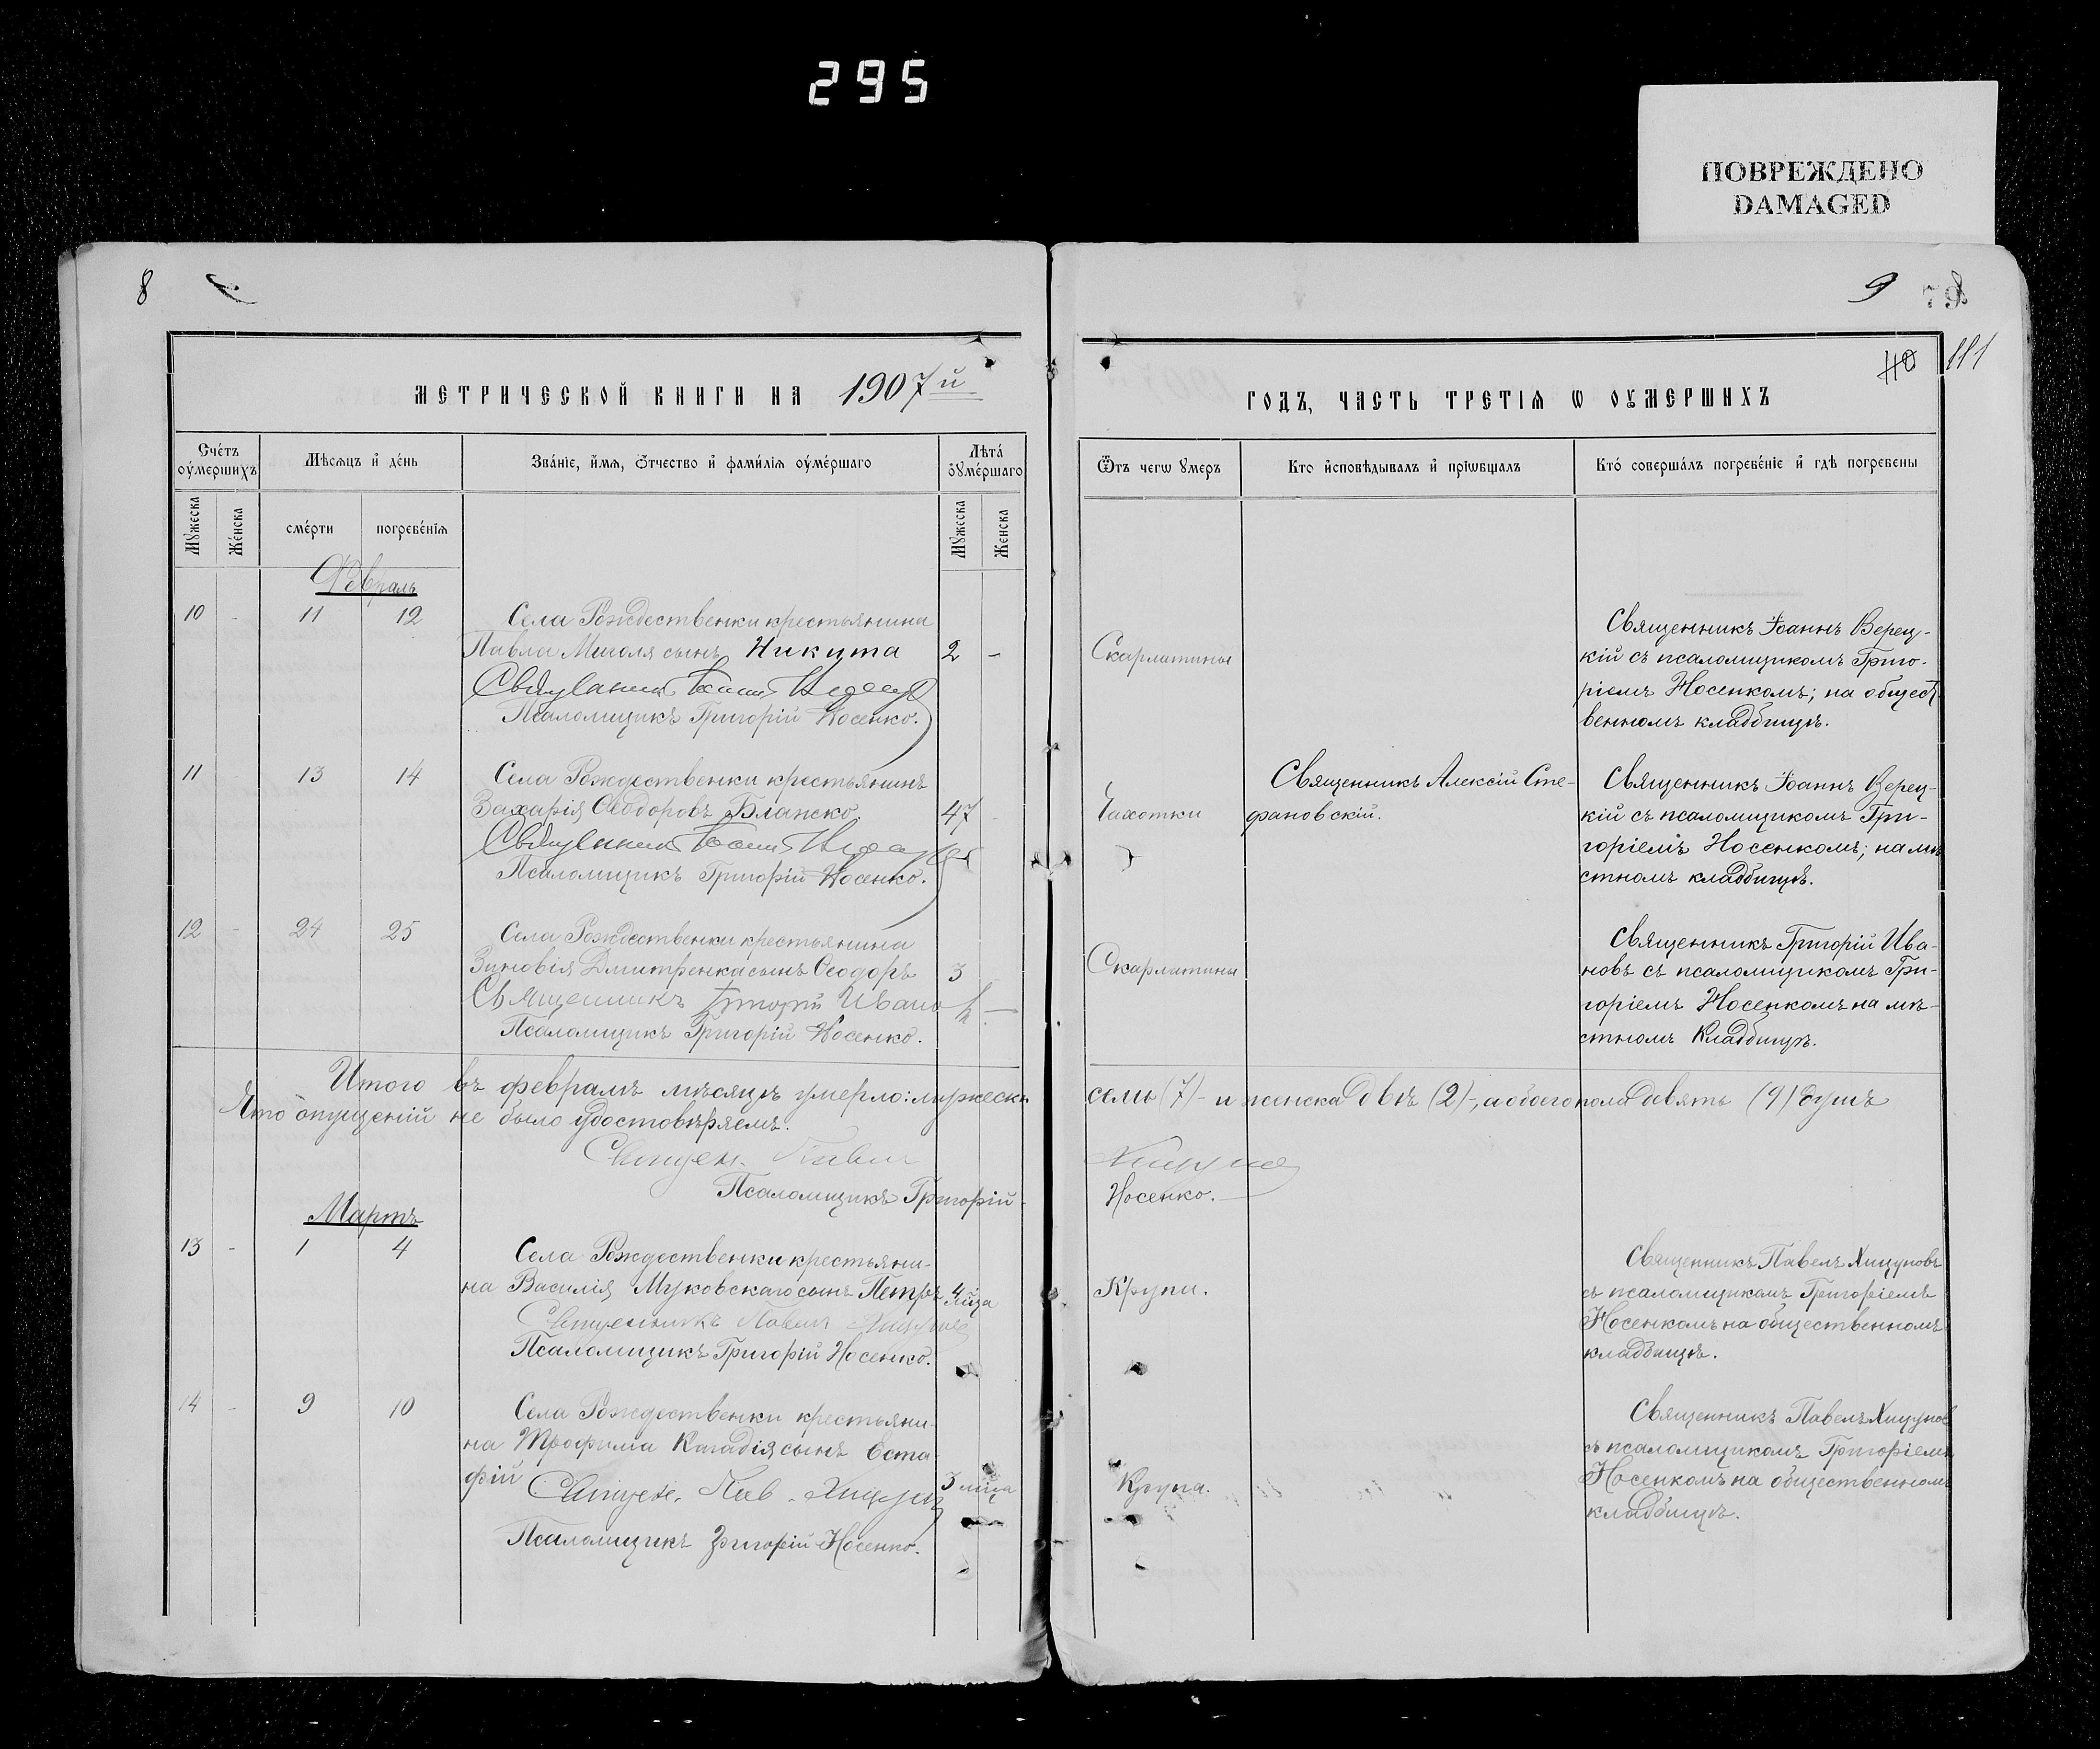 295
ПОВРЕЖДЕНО
DAMAGED
8
9
110
111
МЕТРИЧЕСКОЙ КНИГИ НА 1907й
ГОДЪ, ЧАСТЬ ТРЕТІѦ Ѡ ОУМЕРШИХЪ
Счетъ оумершихъ
Мѣсяцъ и день
Званіе, имя, отчество и фамилія оумершаго
Лѣта оумершаго
Мужеска
Женска
смерти
погребенія
Мужеска
Женска
Ѿтъ чегѡ умеръ
Кто исповѣдывалъ и пріѡбщалъ
Кто совершалъ погребеніе и гдѣ погребены
Февраль
10 - 11 12
Села Рождественки крестьянина
Павла Миголя сынъ Никита 2 -
Священникъ Іоаннъ
Псаломщикъ Григорій Носенко.
Скарлатины
Священникъ Іоаннъ Верец-
кій съ псаломщикомъ Григо-
ріемъ Носенкомъ; на общест-
венномъ кладбищѣ.
11 13 14
Села Рождественки крестьянинъ
Захарія Ѳеодоровъ Бланско. 47
Священникъ Іоаннъ
Псаломщикъ Григорій Носенко.
Чахотки
Священникъ Алексій Сте-
фановскій.
Священникъ Іоаннъ Верец-
кій съ псаломщикомъ Гри-
горіемъ Носенкомъ; на мѣ
стномъ кладбищѣ.
12 - 24 25
Села Рождественки крестьянина
Зиновія Дмитренка сынъ Ѳеодоръ 3
Священникъ Григорій Ивановъ
Псаломщикъ Григорій Носенко.
Скарлатины
Священникъ Григорій Ива-
новъ съ псаломщикомъ Гри-
горіемъ Носенкомъ на мѣ-
стномъ кладбищѣ.
Итого въ февралѣ мѣсяцѣ умерло: мужеска семь (7) - и женска двѣ (2) -, а обоего пола девять (9) душъ
Что опущеній не было удостовѣряемъ.
Священ. Павелъ Хицуновъ
Псаломщикъ Григорій Носенко.
Мартъ
13 - 1 4
Села Рождественки крестьяни-
на Василія Муковскаго сынъ Петръ 4 м-ца
Священникъ Павелъ Хицуновъ
Псаломщикъ Григорій Носенко.
Крупа.
Священникъ Павелъ Хицуновъ
съ псаломщикомъ Григоріемъ
Носенкомъ на общественномъ
кладбищѣ.
14 - 9 10
Села Рождественки крестьяни-
на Трофима Кагадія сынъ Еста-
фій 3 м-ца
Священ. Пав. Хицунов
Псаломщикъ Григорій Носенко.
Крупа.
Священникъ Павелъ Хицунов
съ псаломщикомъ Григоріемъ
Носенкомъ на общественномъ
кладбищѣ.